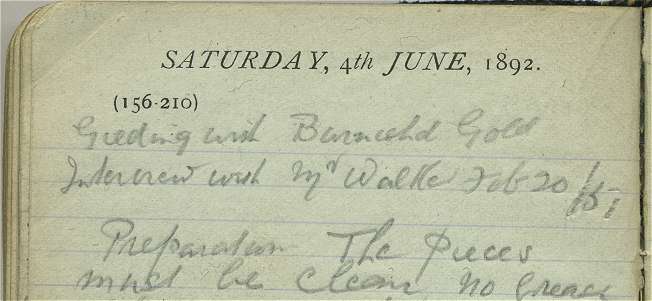 SATURDAY, 4th JUNE, 1892.
(156-210)
Gilding with Burnished Gold
Interview with Mr Walke Feb 20/15
Preparation The pieces
must be clean no grease